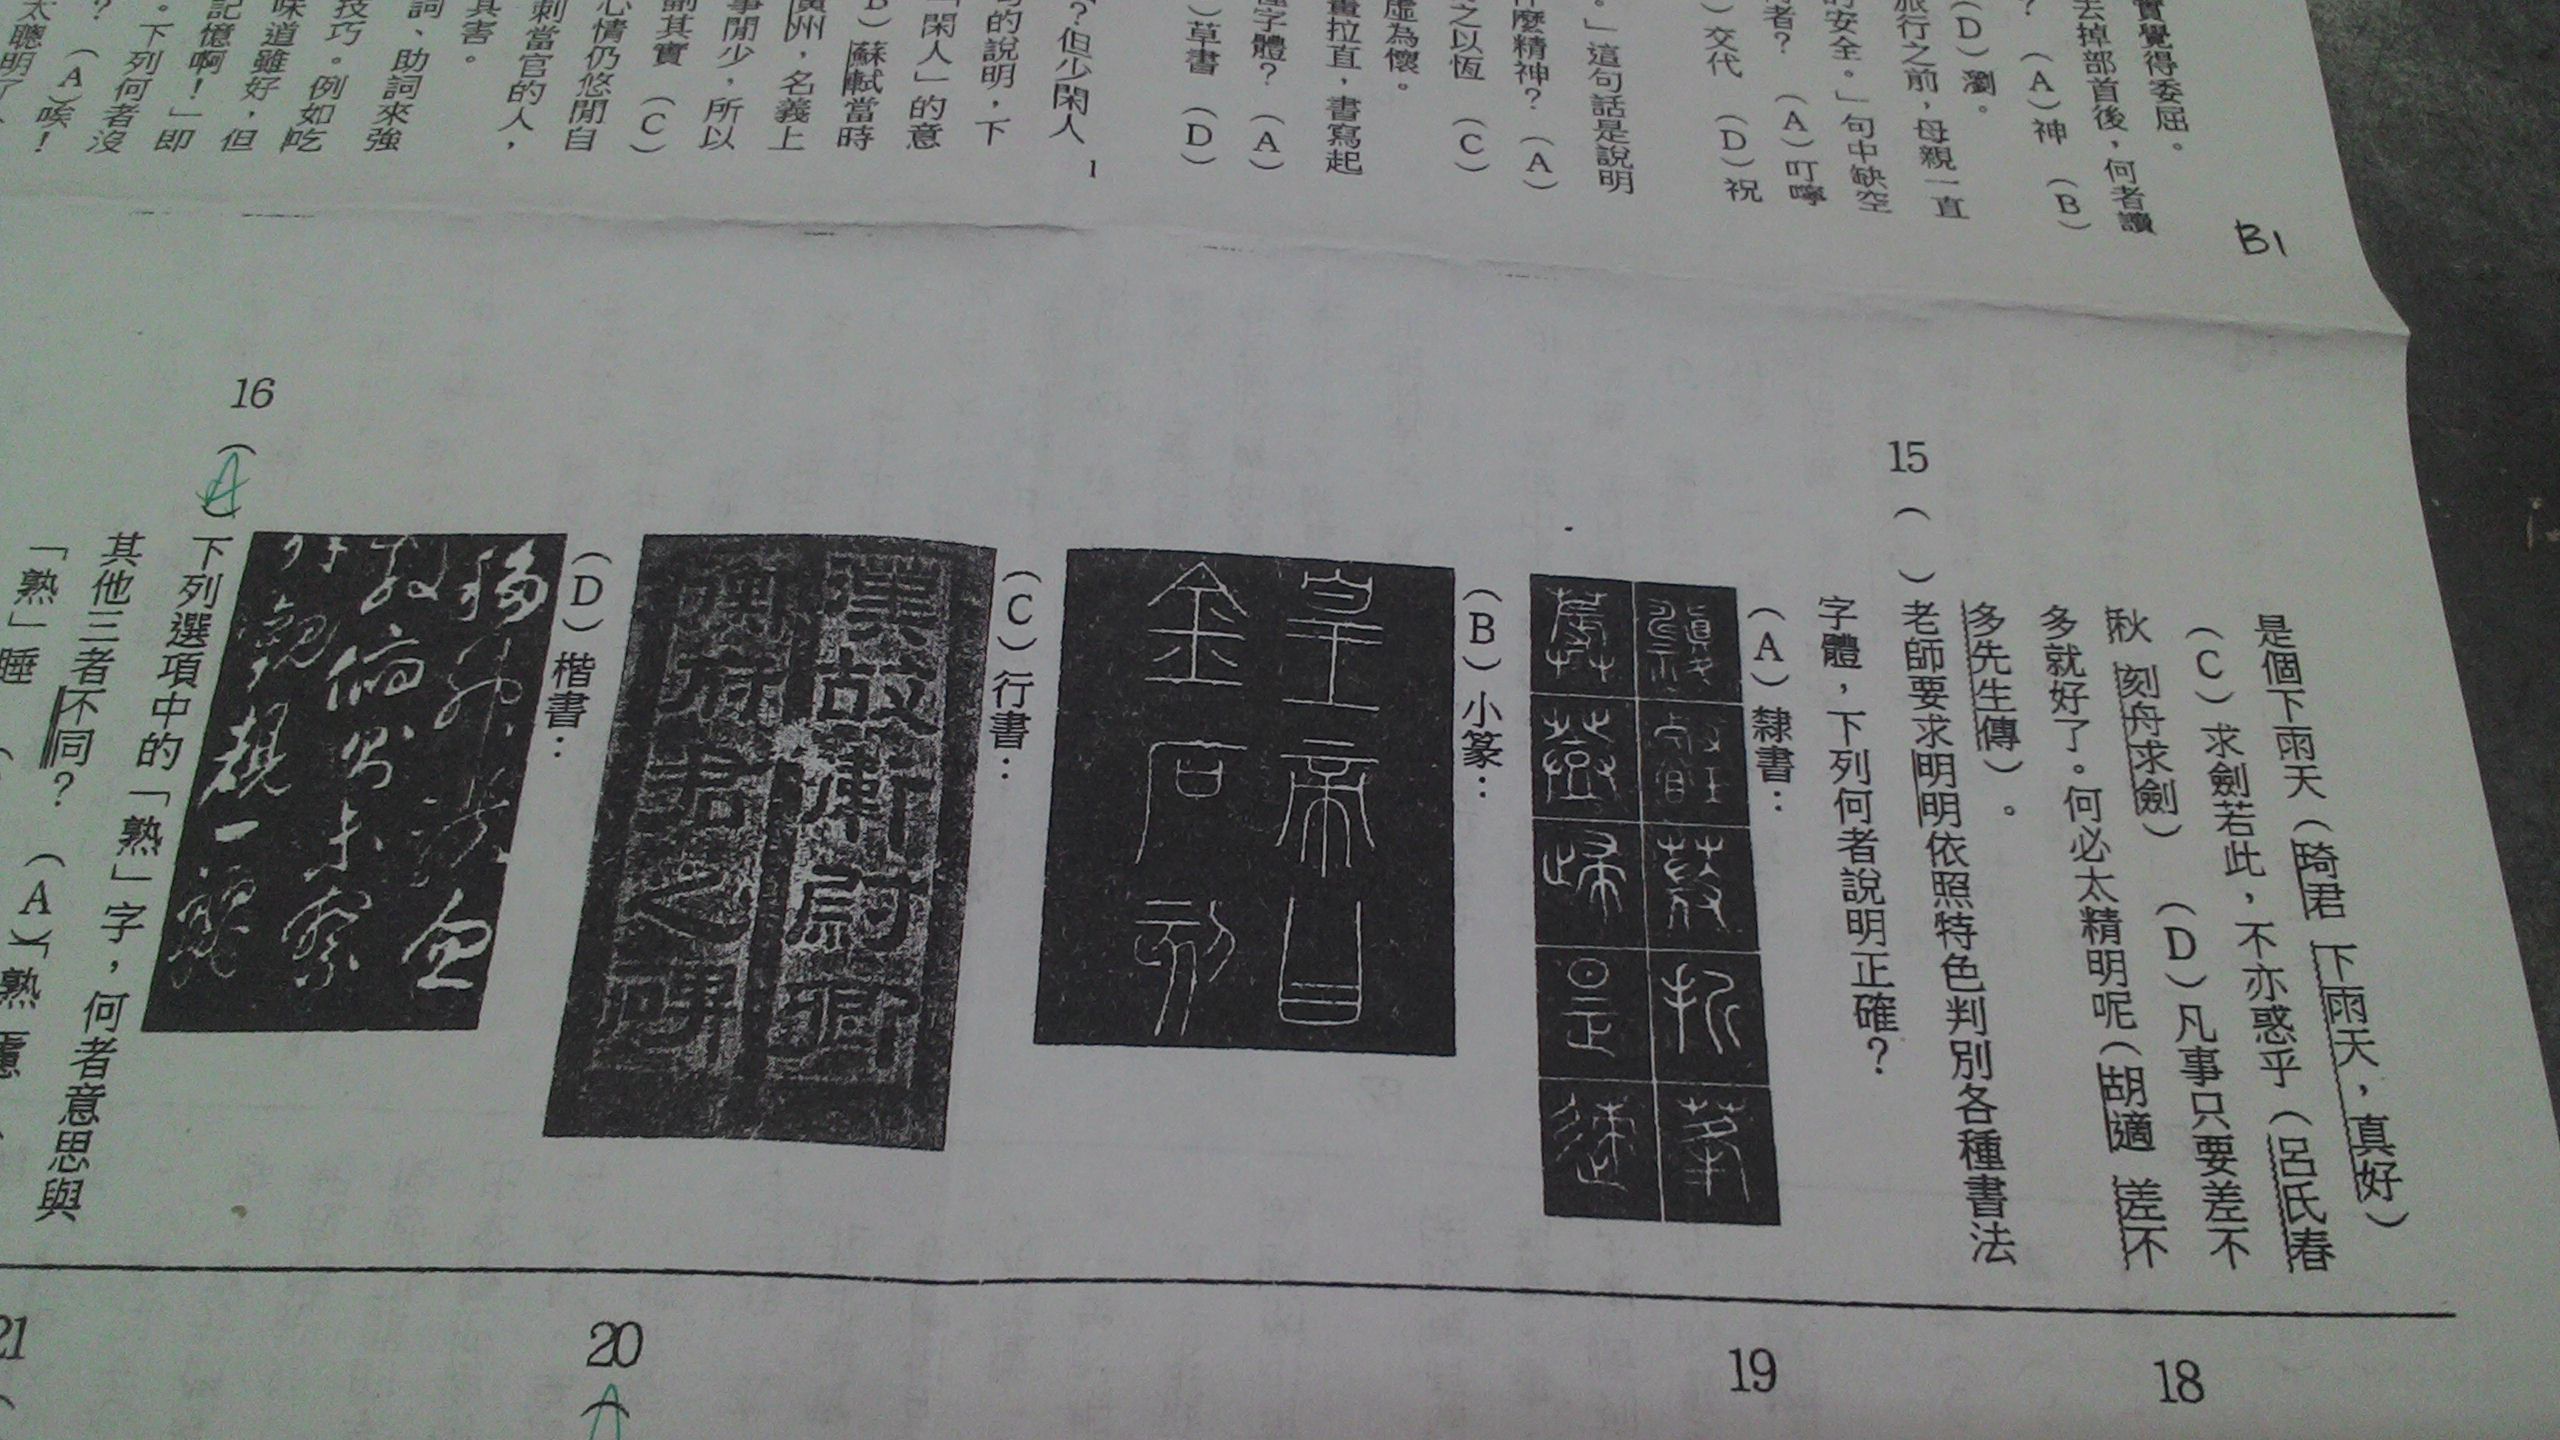 實覺得委屈。
去掉部首後，何者讀
？（A）神（B）
（D）瀏。
旅行之前，母親一直
的安全。」句中缺空
者？（A）叮嚀
）交代（D）祝
。」這句話是說明
什麼精神？（A）
之以恆（C）
虛為懷。
畫拉直，書寫起
種字體？（A）
）草書（D）
？但少閑人
1
的說明，下
「閑人」的意
B）蘇軾當時
黃州，名義上
事閒少，所以
副其實（C）
心情仍悠閒自
刺當官的人，
其害。
詞、助詞來強
技巧。例如吃
味道雖好，但
記憶啊！」即
。下列何者沒
？（A）唉！
太聰明了
B1
是個下雨天（琦君 下雨天，真好）
（C）求劍若此，不亦惑乎（呂氏春
秋 刻舟求劍）（D）凡事只要差不
多就好了。何必太精明呢（胡適 差不
多先生傳）。
15（ ）老師要求明明依照特色判別各種書法
字體，下列何者說明正確？
（A）隸書：
（B）小篆：
皇帝曰
金石刻
（C）行書：
漢故衛尉卿
衡府君之碑
（D）楷書：
16（A）下列選項中的「熟」字，何者意思與
其他三者不同？（A）「熟慮
「熟」睡（
18
19
20（A
21（